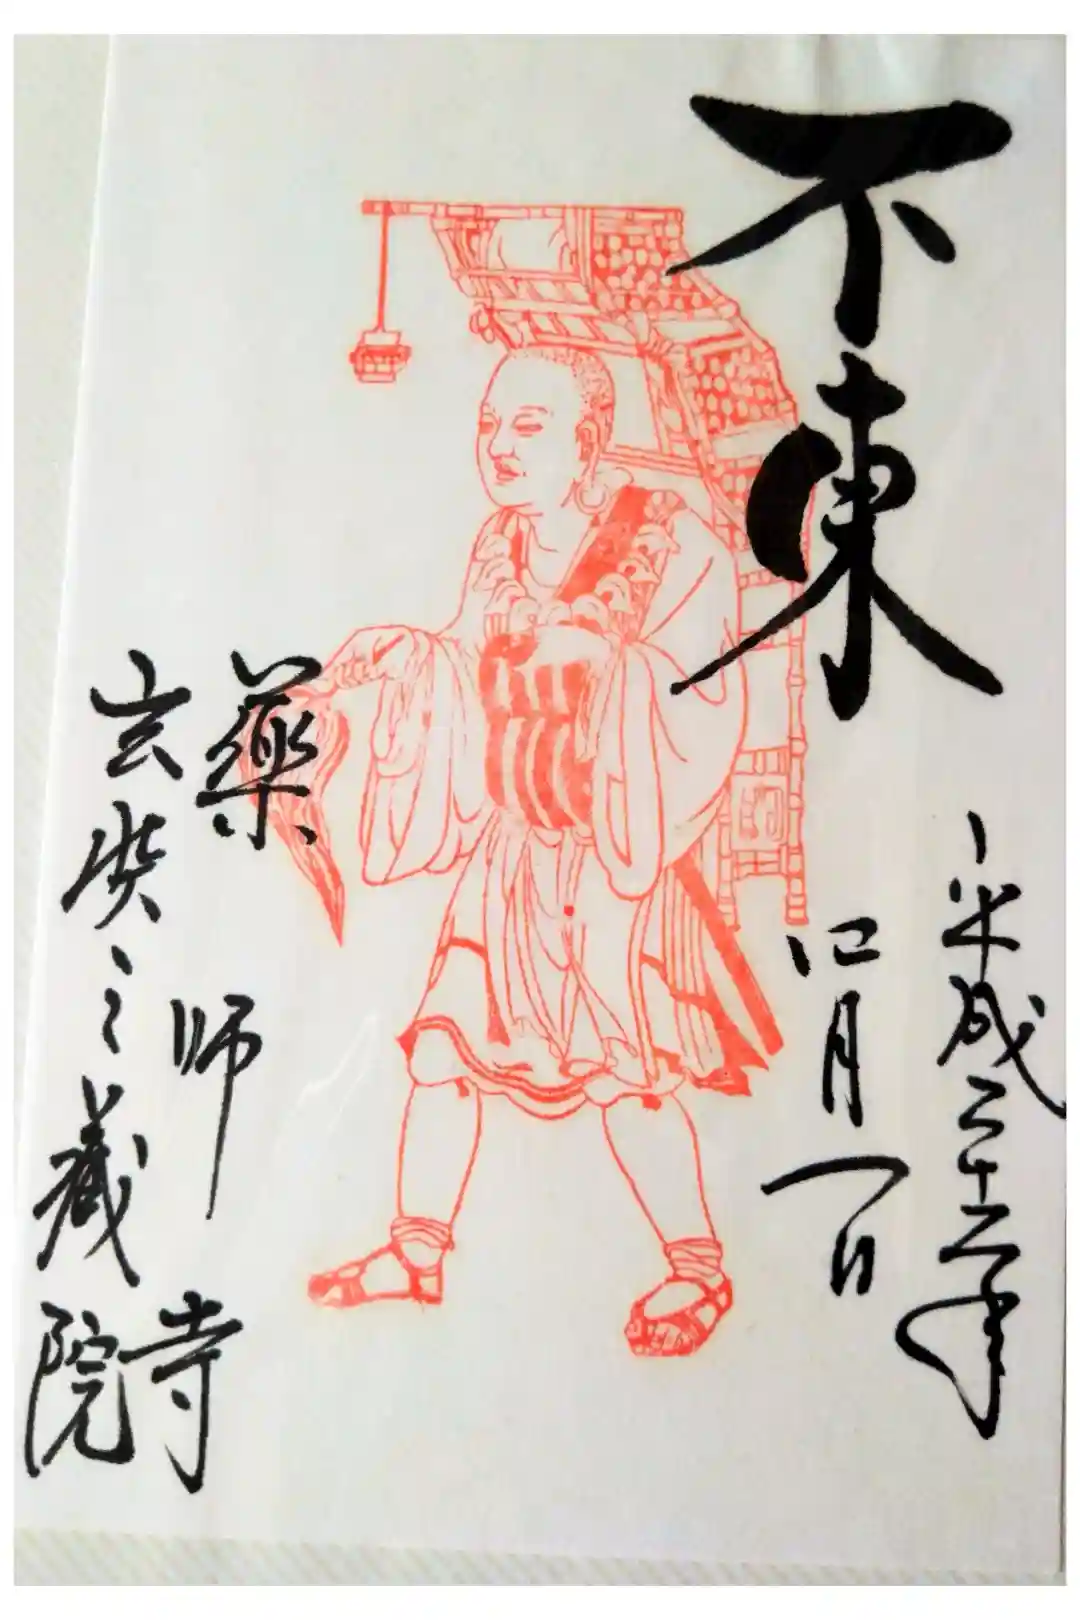 不東
平成二十二年
四月一日
藥師寺
玄奘三藏院